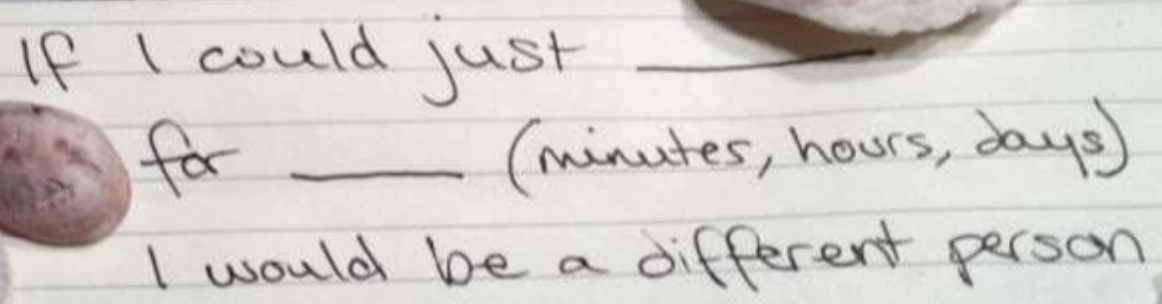 If I could just ______
for ______ (minutes, hours, days)
I would be a different person